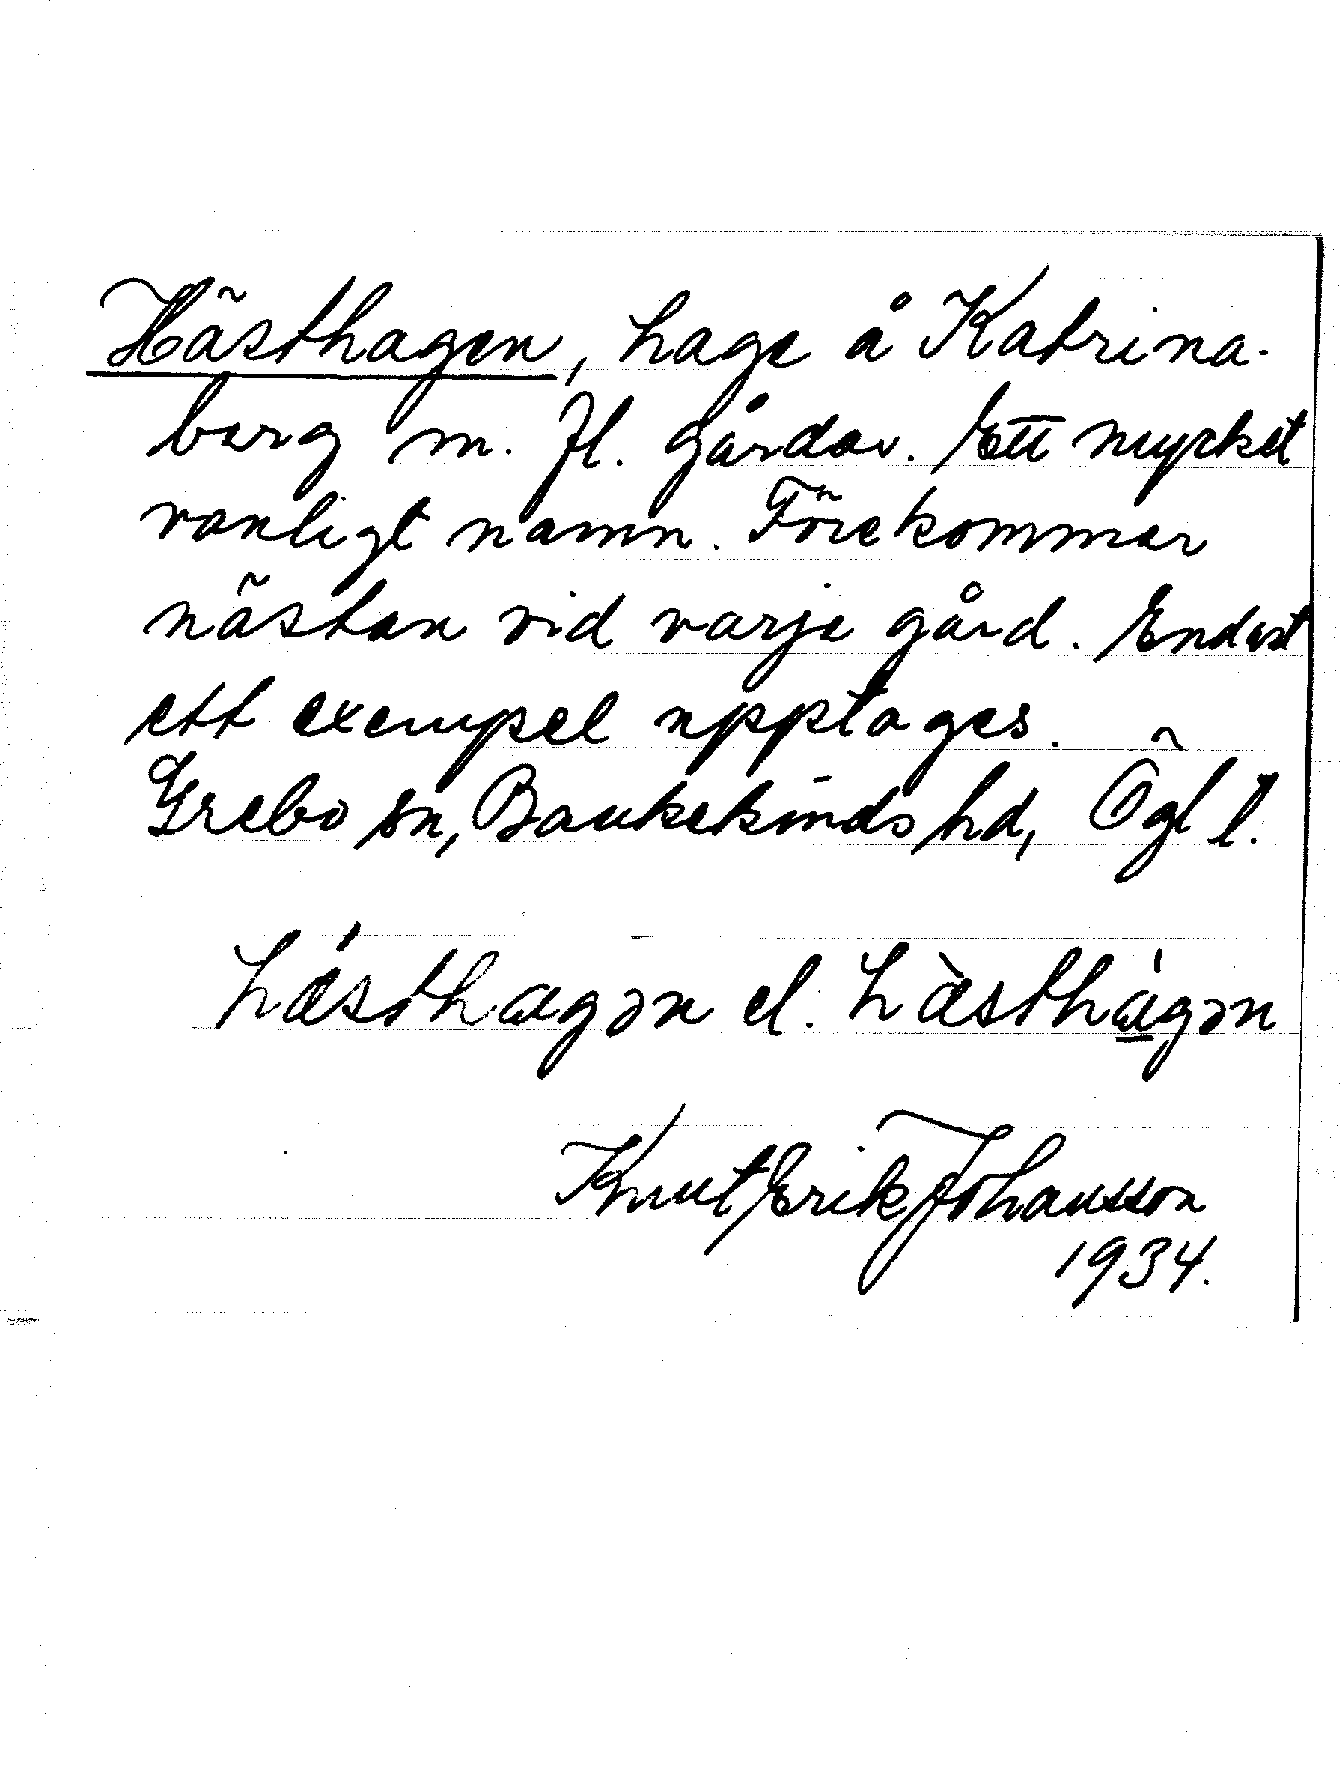 Hästhagen, hage å Katrina-
berg m. fl. gårdar. Ett mycket
vanligt namn. Förekommer
nästan vid varje gård. Endast
ett exempel upptages.
Grebo sn, Bankekinds hd, Ögl l.
hǽsthagən el. hæ̀sthágən
Knut Erik Johansson
1934.